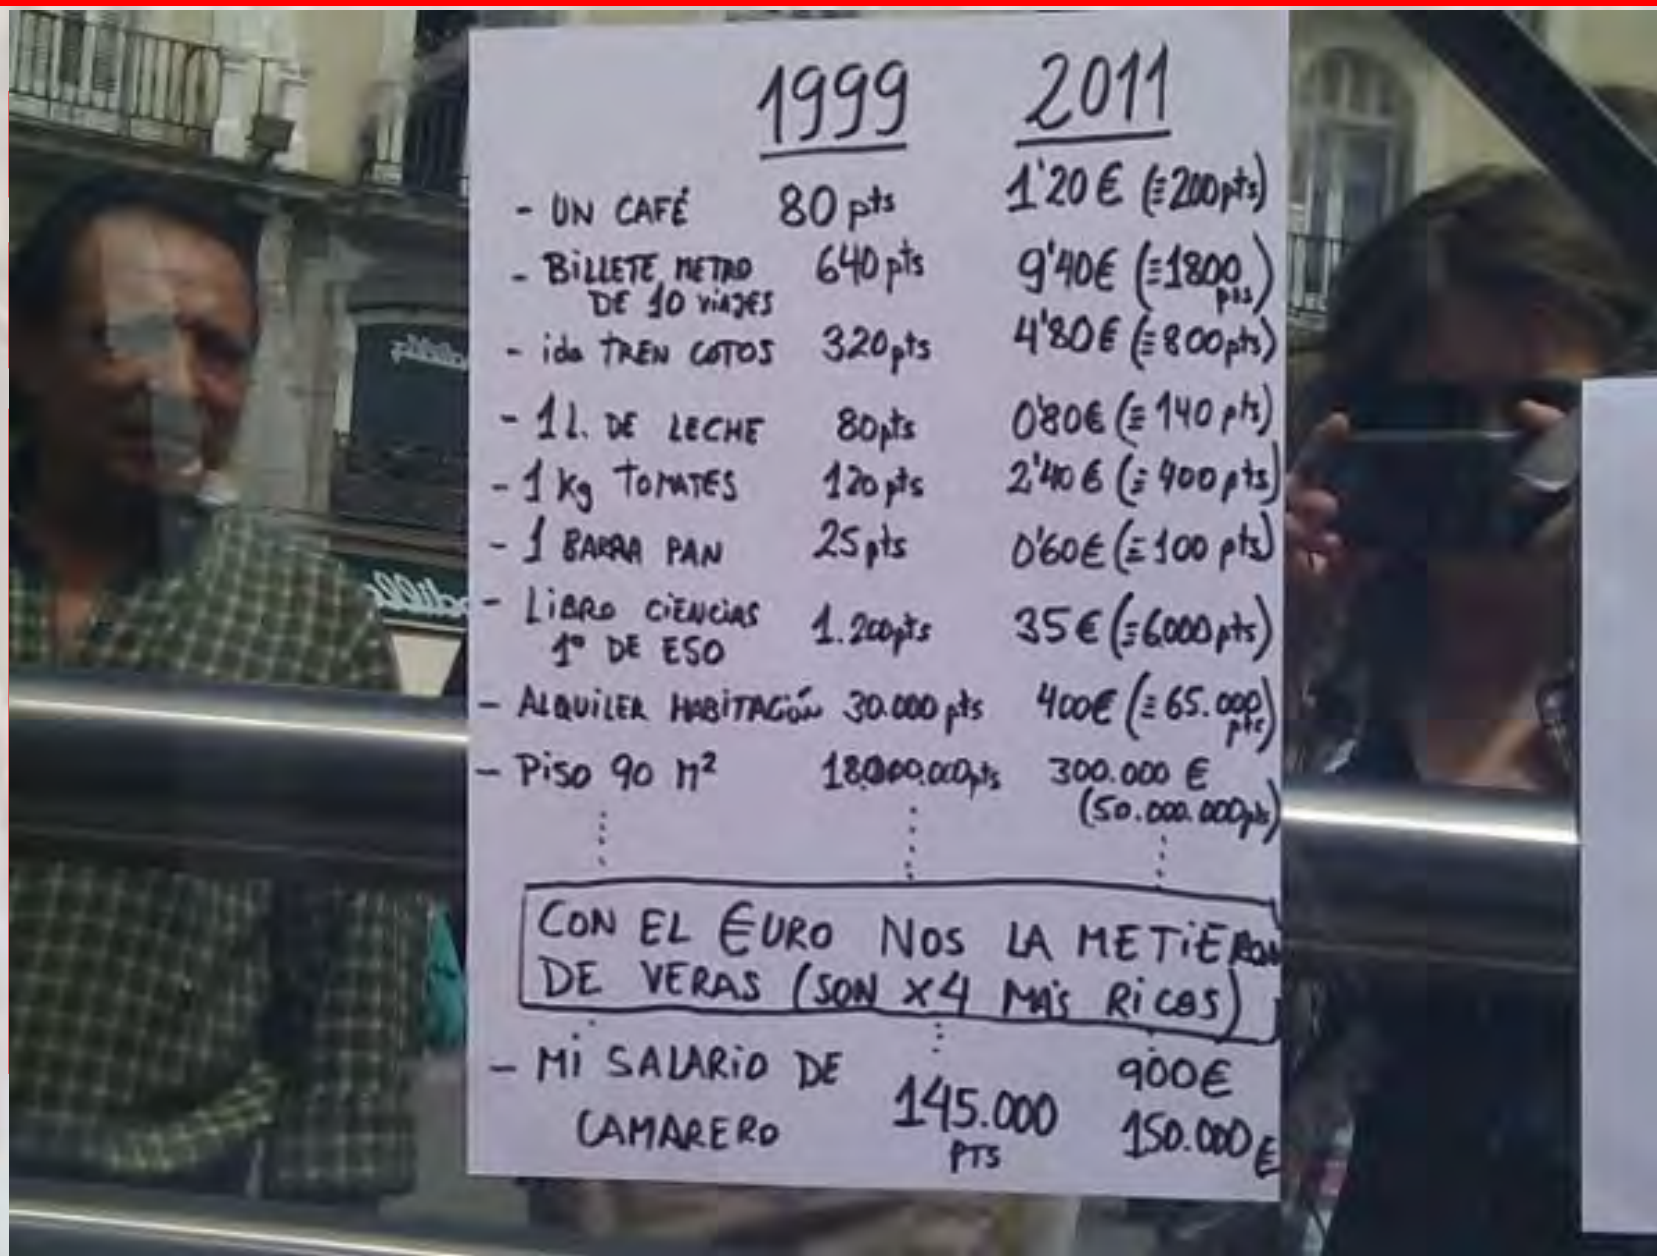 1999 2011
- UN CAFÉ 80 pts 1'20 € (≡200pts)
- BILLETE METRO 640 pts 9'40€ (≡1800
DE 10 VIAJES pts)
- ida TREN COTOS 320pts 4'80€ (≡800pts)
- 1 l. DE LECHE 80pts 0'80€ (≡ 140 pts)
- 1 Kg TOMATES 120 pts 2'40€ (≡ 400 pts)
- 1 BARRA PAN 25 pts 0'60€ (≡100 pts)
- LIBRO CIENCIAS 1.200pts 35€ (≡6000pts)
1º DE ESO
- ALQUILER HABITACIÓN 30.000 pts 400€ (≡65.000
pts)
- PISO 90 M² 18.000.000pts 300.000 €
(50.000.000pts)
CON EL €URO NOS LA METIERON
DE VERAS (SON X4 MÁS RICOS)
- MI SALARIO DE 900€
CAMARERO 145.000 150.000€
PTS